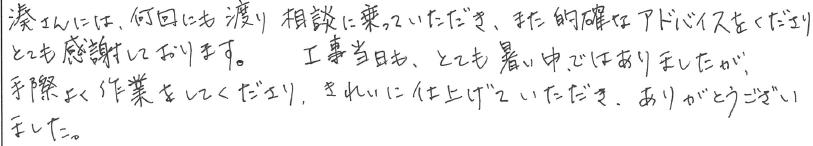 湊さんには、何回にも渡り 相談に乗っていただき、また的確なアドバイスをくださり
とても感謝しております。 工事当日も、とても暑い中ではありましたが、
手際よく作業をしてくださり、きれいに仕上げていただき、ありがとうござい
ました。